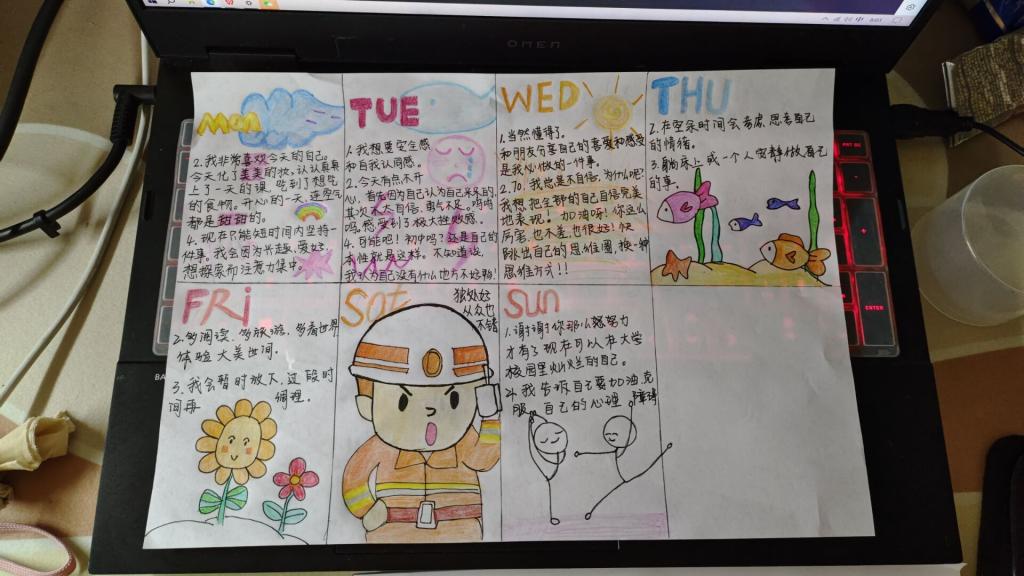 OMEN
Mon
2. 我非常喜欢今天的自己。
今天化了美美的妆，认认真真
上了一天的课 吃到了想吃
的食物。开心的一天，连空气
都是甜甜的。
4. 现在只能短时间内坚持一
件事。我会因为兴趣、爱好、
想探索而注意力集中。
TUE
1. 我想要安全感
和自我认同感。
2. 今天有点不开
心，首先因为自己认为自己来的
其次不太自信、勇气不足。呜呜
呜，感受到了极大挫败感。
4. 可能吧！初中吗？还是自己的
本性就是这样。不知道说。
我认为自己没有什么地方不妙勒！
WED
1. 当然懂得。
和朋友分享自己的喜爱和感受
是我必做的一件事。
2. To. 我总是不自信，为什么呢？
我想把全部的自己自信完美
地表现！加油呀！你这么
厉害，也不差，也很好！快
跳出自己的思维圈，换一种
思维方式！！
THU
2. 在空余时间会考虑、思考自己
的情绪。
3. 躺床上或一个人安静做自己
的事。
FRi
2. 多阅读、多旅游、多看世界
体验大美世间。
3. 我会暂时放下，过段时
间再 调理。
Sat
独处好
从众也
不错
Sun
1. 谢谢你那么努力
才有了现在可以在大学
校园里灿烂的自己。
4. 我告诉自己要加油，克
服 自己的心理障碍
ENTER